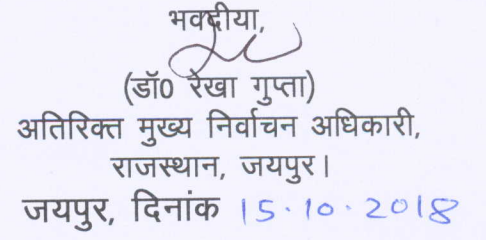 भवदीया,
(डॉ0 रेखा गुप्ता)
अतिरिक्त मुख्य निर्वाचन अधिकारी,
राजस्थान, जयपुर।
जयपुर, दिनांक 15.10.2018